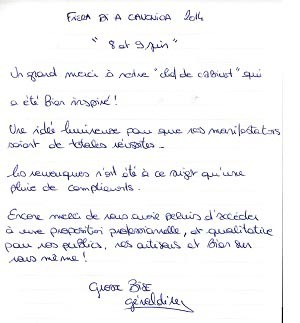 FIERA DI A CANONICA 2014
" 8 et 9 Juin "
Un grand merci à notre "chef de cabinet" qui
a été bien inspiré !
Une idée lumineuse pour que vos manifestations
soient de totales réussites.
Les remarques n'ont été à ce sujet qu'une
pluie de compliments.
Encore merci de nous avoir permis d'accéder
à une proposition professionnelle, et qualitative
pour nos publics, nos artisans et bien sur
nous même !
GROSSE BISE
Géraldine